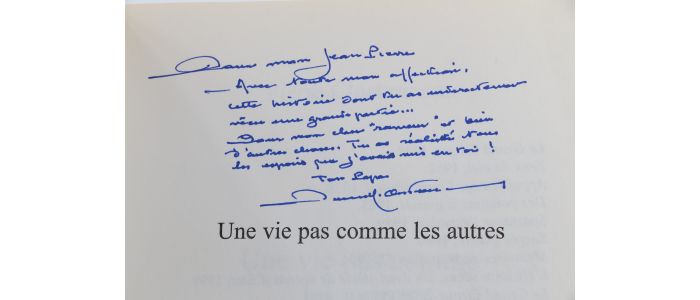 Pour mon Jean Pierre
Avec toute mon affection,
cette histoire dont tu as indirectement
vécu une grande partie...
Pour mon cher "rameur" et bien
d'autres choses. Tu as réalisé tous
les espoirs que j'avais mis en toi !
Ton Papa
Une vie pas comme les autres